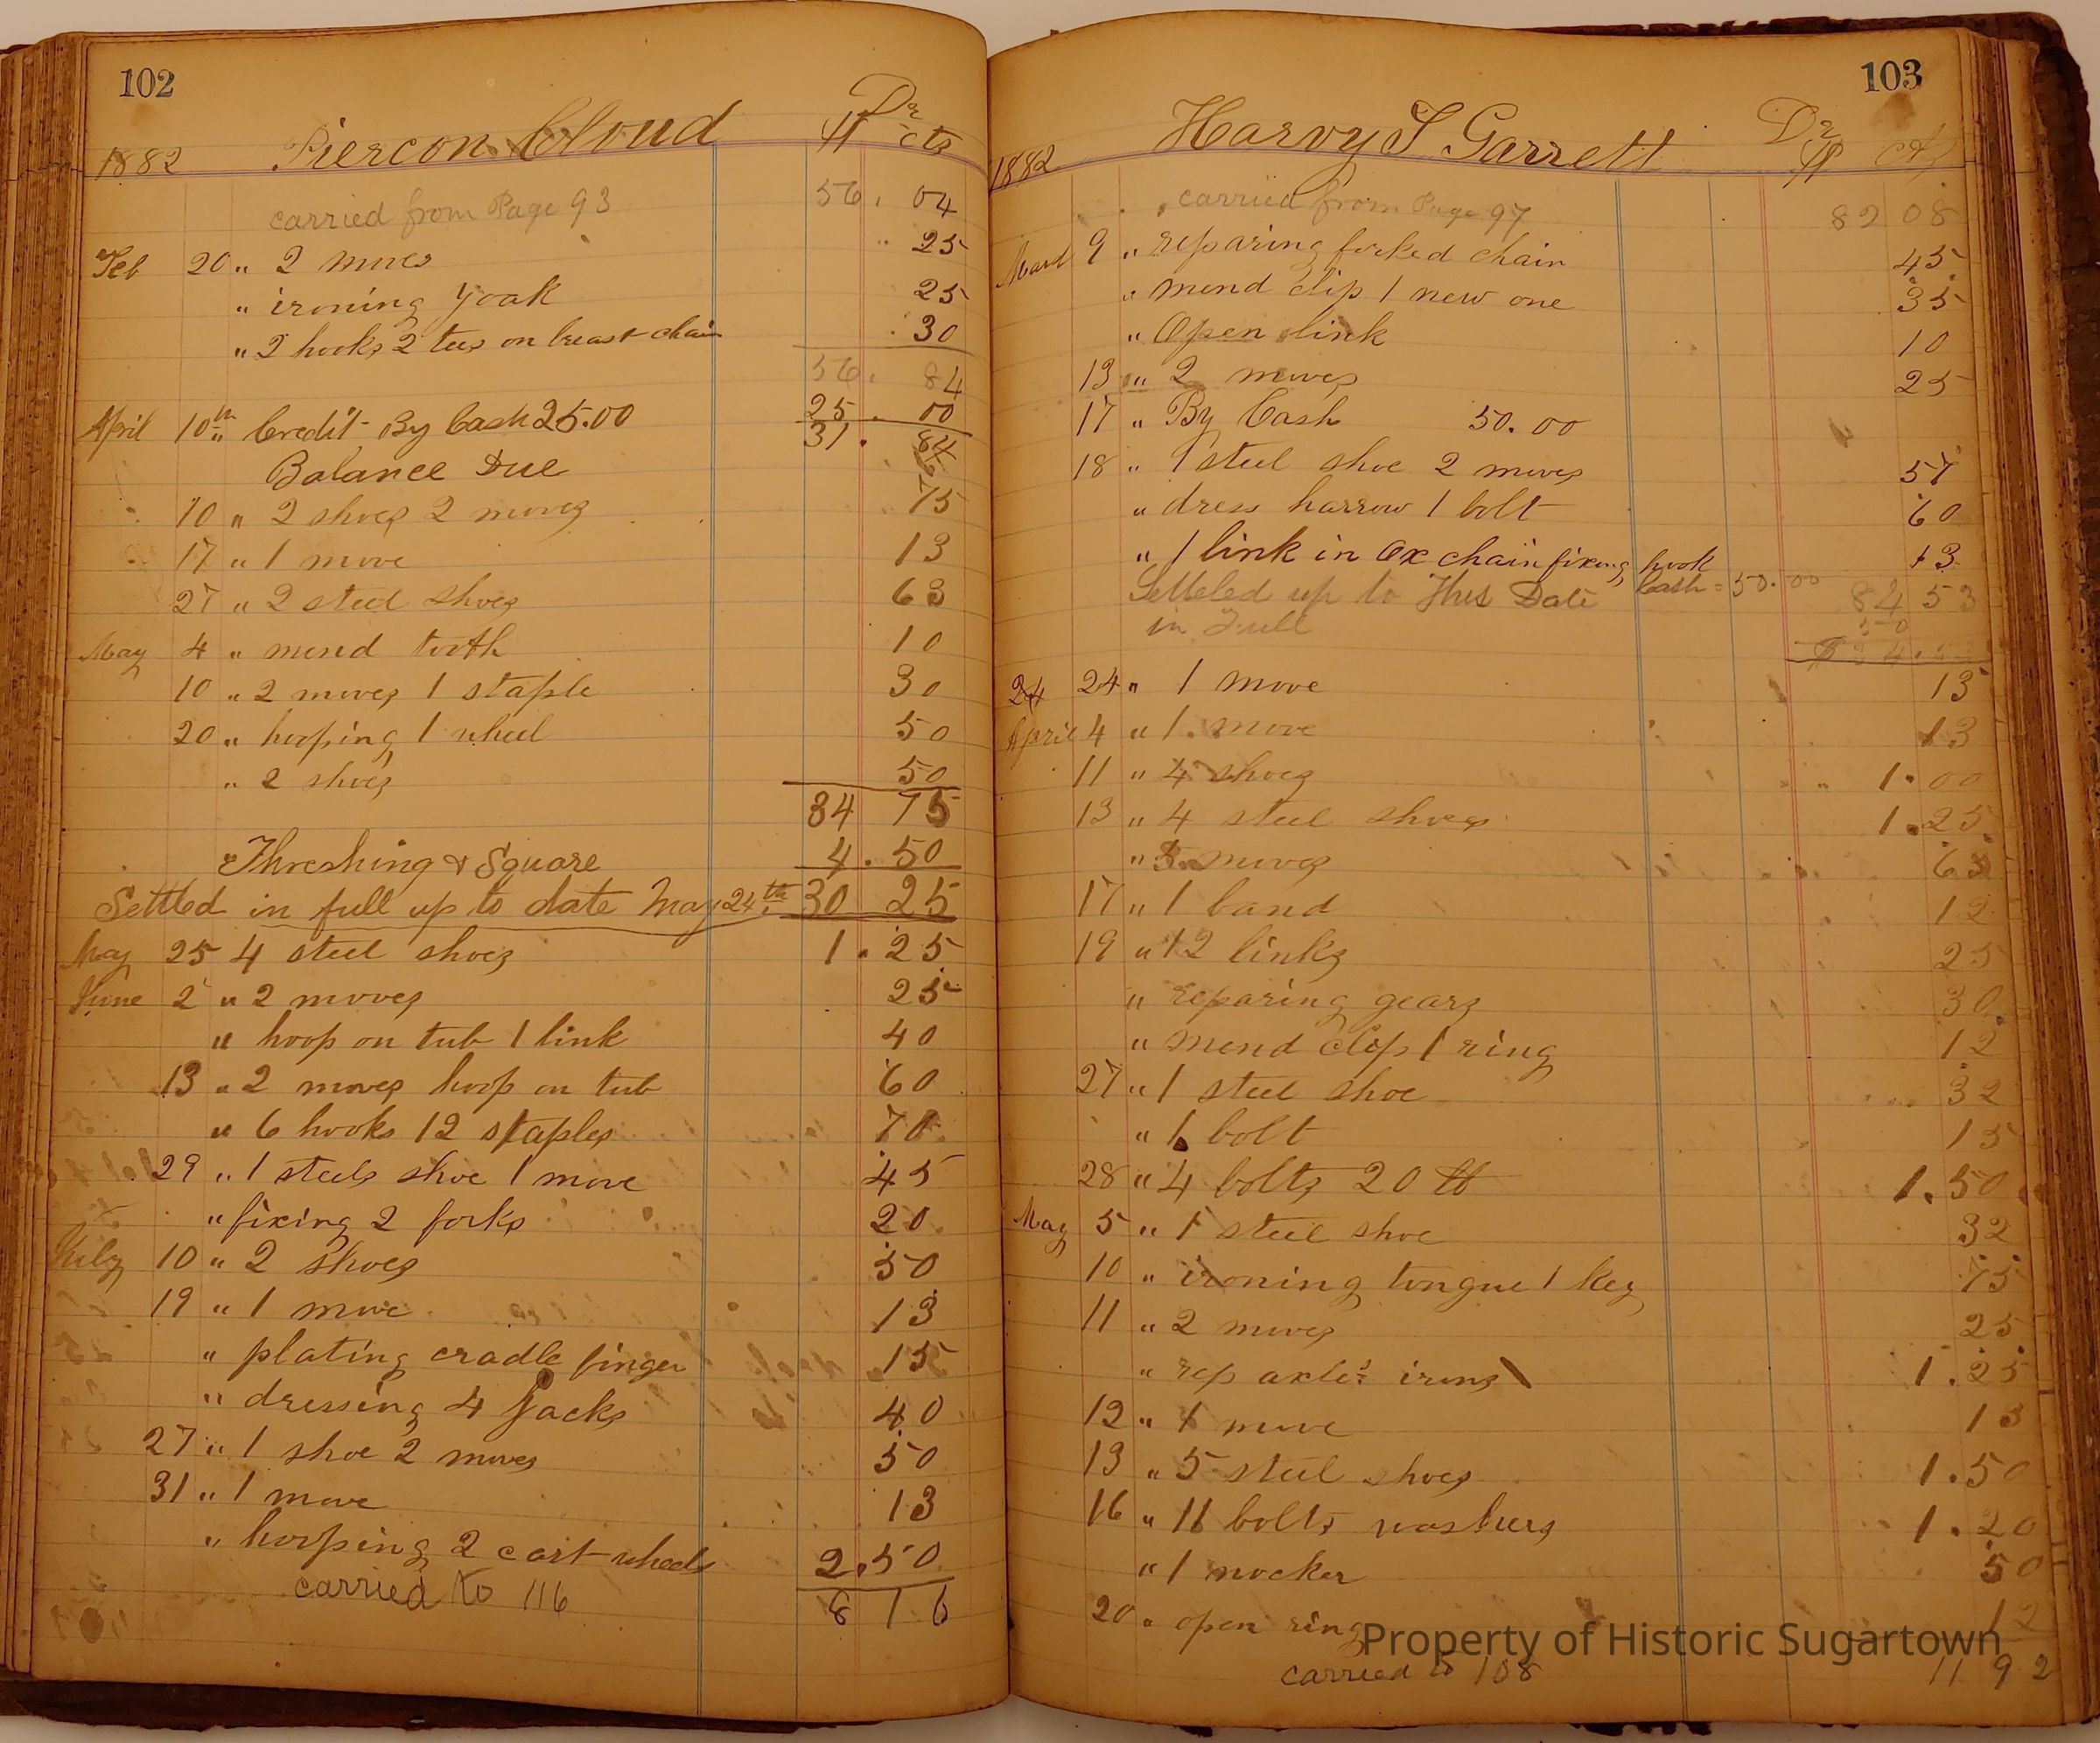 102
Dr
1882 Piercon Cloud $ cts
carried from Page 93 56. 04
Feb 20 " 2 moves 25
" ironing yoak 25
" 2 hooks 2 tees on breast chain 30
56. 84
April 10th " Credit By Cash 25.00 25. 00
31. 84
Balance Due
10 " 2 shoes 2 moves 75
17 " 1 move 13
27 " 2 steel shoes 63
May 4 " mend tooth 10
10 " 2 moves 1 staple 30
20 " hooping 1 wheel 50
" 2 shoes 50
34 75
Threshing & Square 4. 50
Settled in full up to date May 24th 30 25
May 25 4 steel shoes 1. 25
June 2 " 2 moves 25
" hoop on tub 1 link 40
13 " 2 moves hoop on tub 60
" 6 hooks 12 staples 70
29 " 1 steele shoe 1 move 45
" fixing 2 forks 20
July 10 " 2 shoes 50
19 " 1 move 13
" plating cradle finger 15
" dressing 4 Jacks 40
27 " 1 shoe 2 moves 50
31 " 1 move 13
" hooping 2 cart wheels 2.50
carried to 116 8 16
103
Harvy T Garrett Dr
1882 $ cts
carried from Page 97 82 08
March 9 " reparing forked chain 45
" mend clip 1 new one 35
" Open link 10
13 " 2 moves 25
17 " By Cash 50.00
18 " 1 steel shoe 2 moves 57
" dress harrow 1 bolt 60
" 1 link in Ox chain fixing hook 13
Settled up to This Date Cash = 50.00 84 53
in Full 50
$34.53
24 24 " 1 move 13
April 4 " 1 move 13
11 " 4 shoes 1.00
13 " 4 steel shoes 1.25
" 5 moves 63
17 " 1 band 12
19 " 12 links 25
" reparing gears 30
" mend clip 1 ring 12
27 " 1 steel shoe 32
" 1 bolt 15
28 " 4 bolts 20 lb 1.50
May 5 " 1 steel shoe 32
10 " ironing tongue 1 key 75
11 " 2 moves 25
" rep axles irons 1.25
12 " 1 move 13
13 " 5 steel shoes 1.50
16 " 11 bolts washers 1.20
" 1 nocker 50
20 " open ring 12
Property of Historic Sugartown
carried to 108 11 92